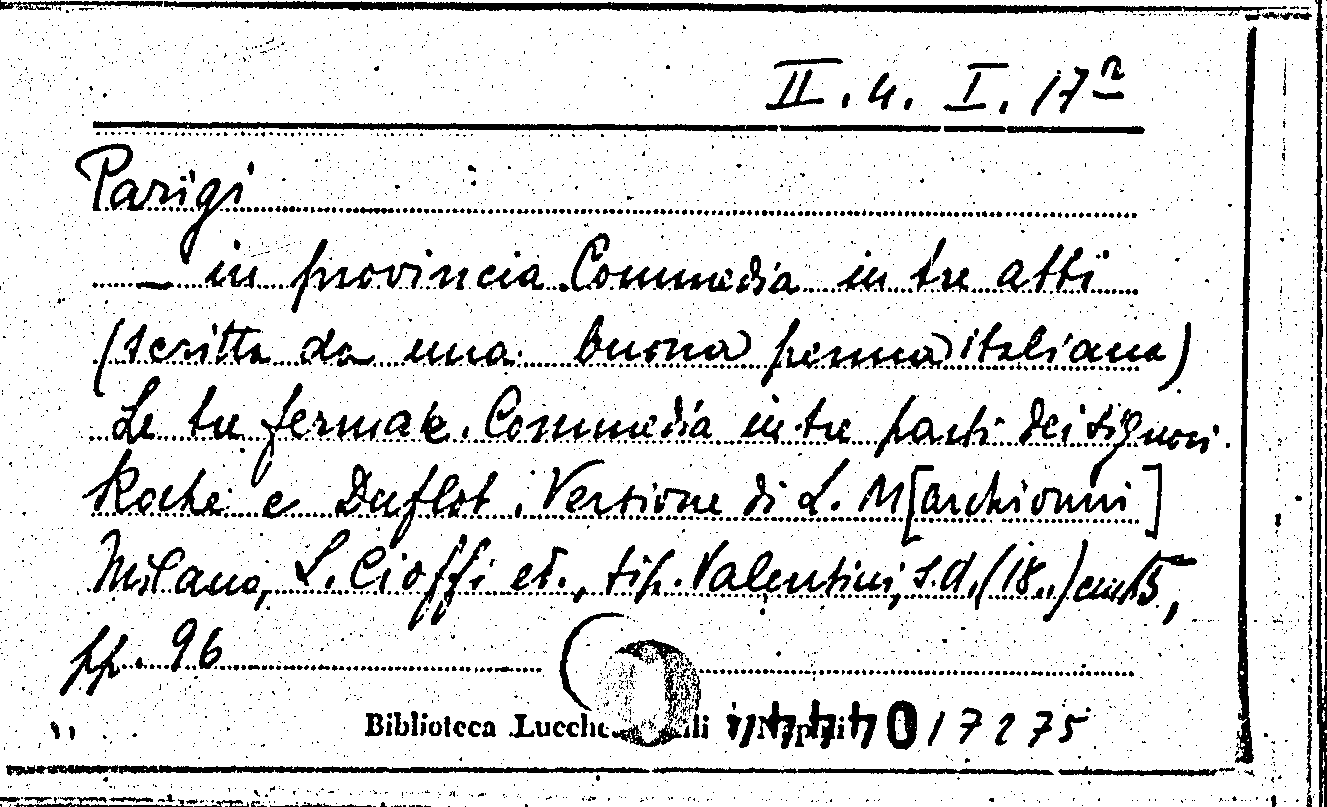 II. 4. I. 17ⁿ
Parigi
— in provincia. Commedia in tre atti
(scritta da una buona penna italiana)
Le tre fermate. Commedia in tre parti dei signori
Roche e Duflot. Versione di L. M[archionni]
Milano, L. Cioffi ed., tip. Valentini, s.d. (18..) cm 15,
pp. 96
Biblioteca Lucchesi 017275